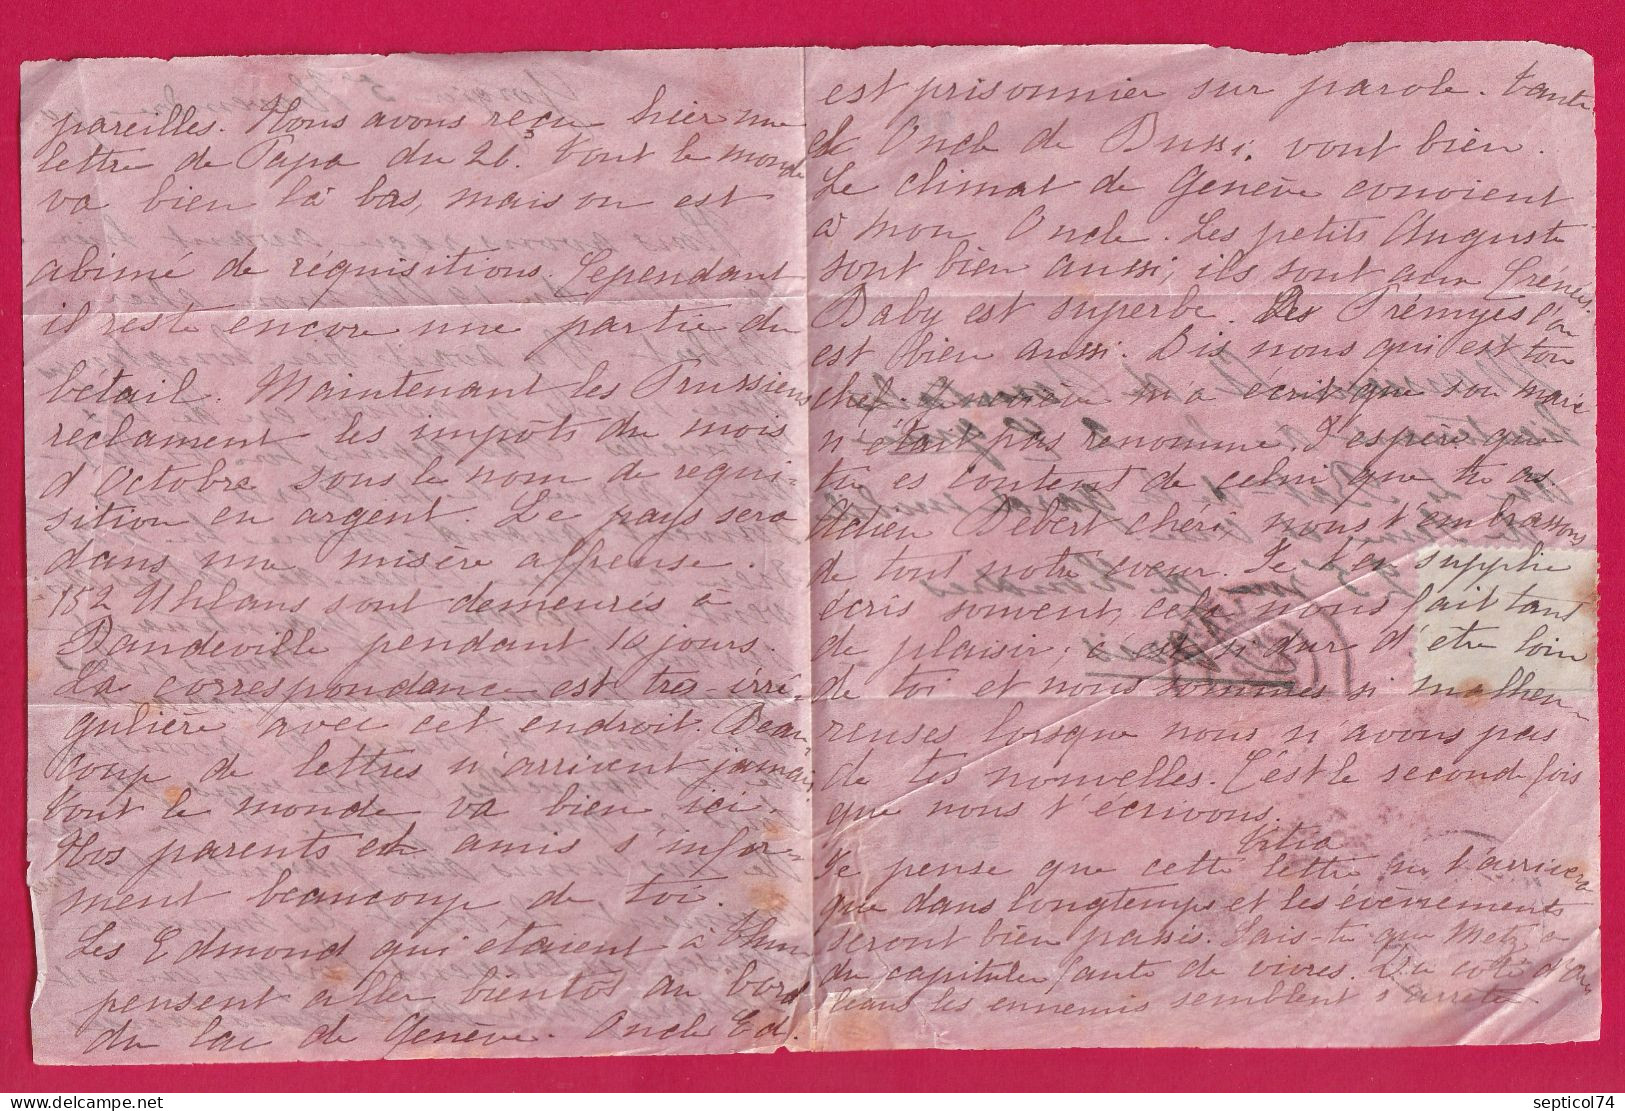 pareilles. Nous avons reçu hier une
lettre de Papa du 26. Tout le monde
va bien là bas, maison est
abimé de réquisitions. Cependant
il reste encore une partie du
bétail. Maintenant les Prussiens
réclament les impôts du mois
d'Octobre sous le nom de requi-
sition en argent. Le pays sera
dans une misère affreuse.
152 Uhlans sont demeurés à
Dandeville pendant 10 jours.
La correspondance est très-irré-
gulière avec cet endroit. Beau-
coup de lettres n'arrivent jamais.
Tout le monde va bien ici.
Nos parents et amis s'infor-
ment beaucoup de toi.
Les Edmond qui étaient à Thun
pensent aller bientôt au bord
du lac de Genève. Oncle Ed.
est prisonnier sur parole. Tante
et Oncle de Bussi vont bien.
Le climat de Genève convient
à mon Oncle. Les petits Auguste
sont bien aussi, ils sont aux
Baby est superbe. Des l'on
est bien aussi. Dis nous qui est ton
chef. t'a écrit que son mari
n'était pas renommé. J'espère que
tu es content de celui que tu as.
Adieu Bébert chéri nous t'embrassons
de tout notre coeur. Je t'en supplie
écris souvent, cela nous fait tant
de plaisir; c'est si dur d'être loin
de toi et nous sommes si malheu-
reuses lorsque nous n'avons pas
de tes nouvelles. C'est le second fois
que nous t'écrivons.
Je pense que cette lettre ne t'arrivera
que dans longtemps et les évènements
seront bien passés. Sais-tu que Metz a
du capituler faute de vivres. Du côté d'Or
léans les ennemis semblent s'arrêter
delcampe.net
septicol74